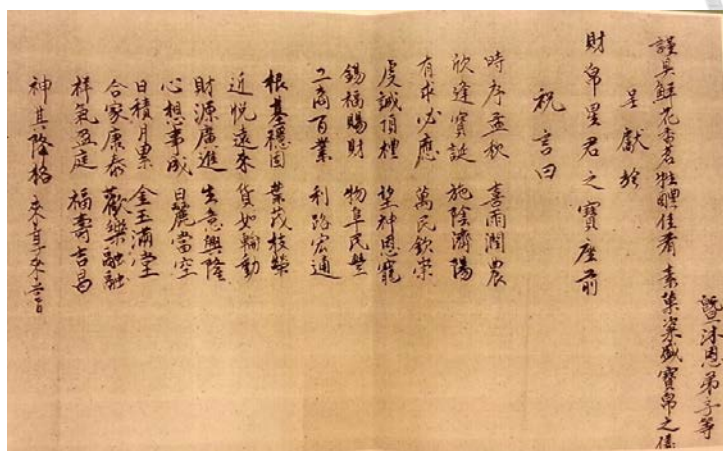 暨沐恩弟子等
謹具鮮花香茗牲醴佳肴素菜粢盛寶帛之儀
呈獻於
財帛星君之寶座前
祝言曰
時序孟秋 喜雨潤農
欣逢寶誕 施陰濟陽
有求必應 萬民欽崇
虔誠頂禮 望神恩寵
錫福賜財 物阜民豐
工商百業 利路宏通
根基穩固 業茂枝榮
近悅遠來 貨如輪動
財源廣進 生意興隆
心想事成 日麗當空
日積月累 金玉滿堂
合家康泰 歡樂融融
祥氣盈庭 福壽吉昌
神其降格 來其來嘗